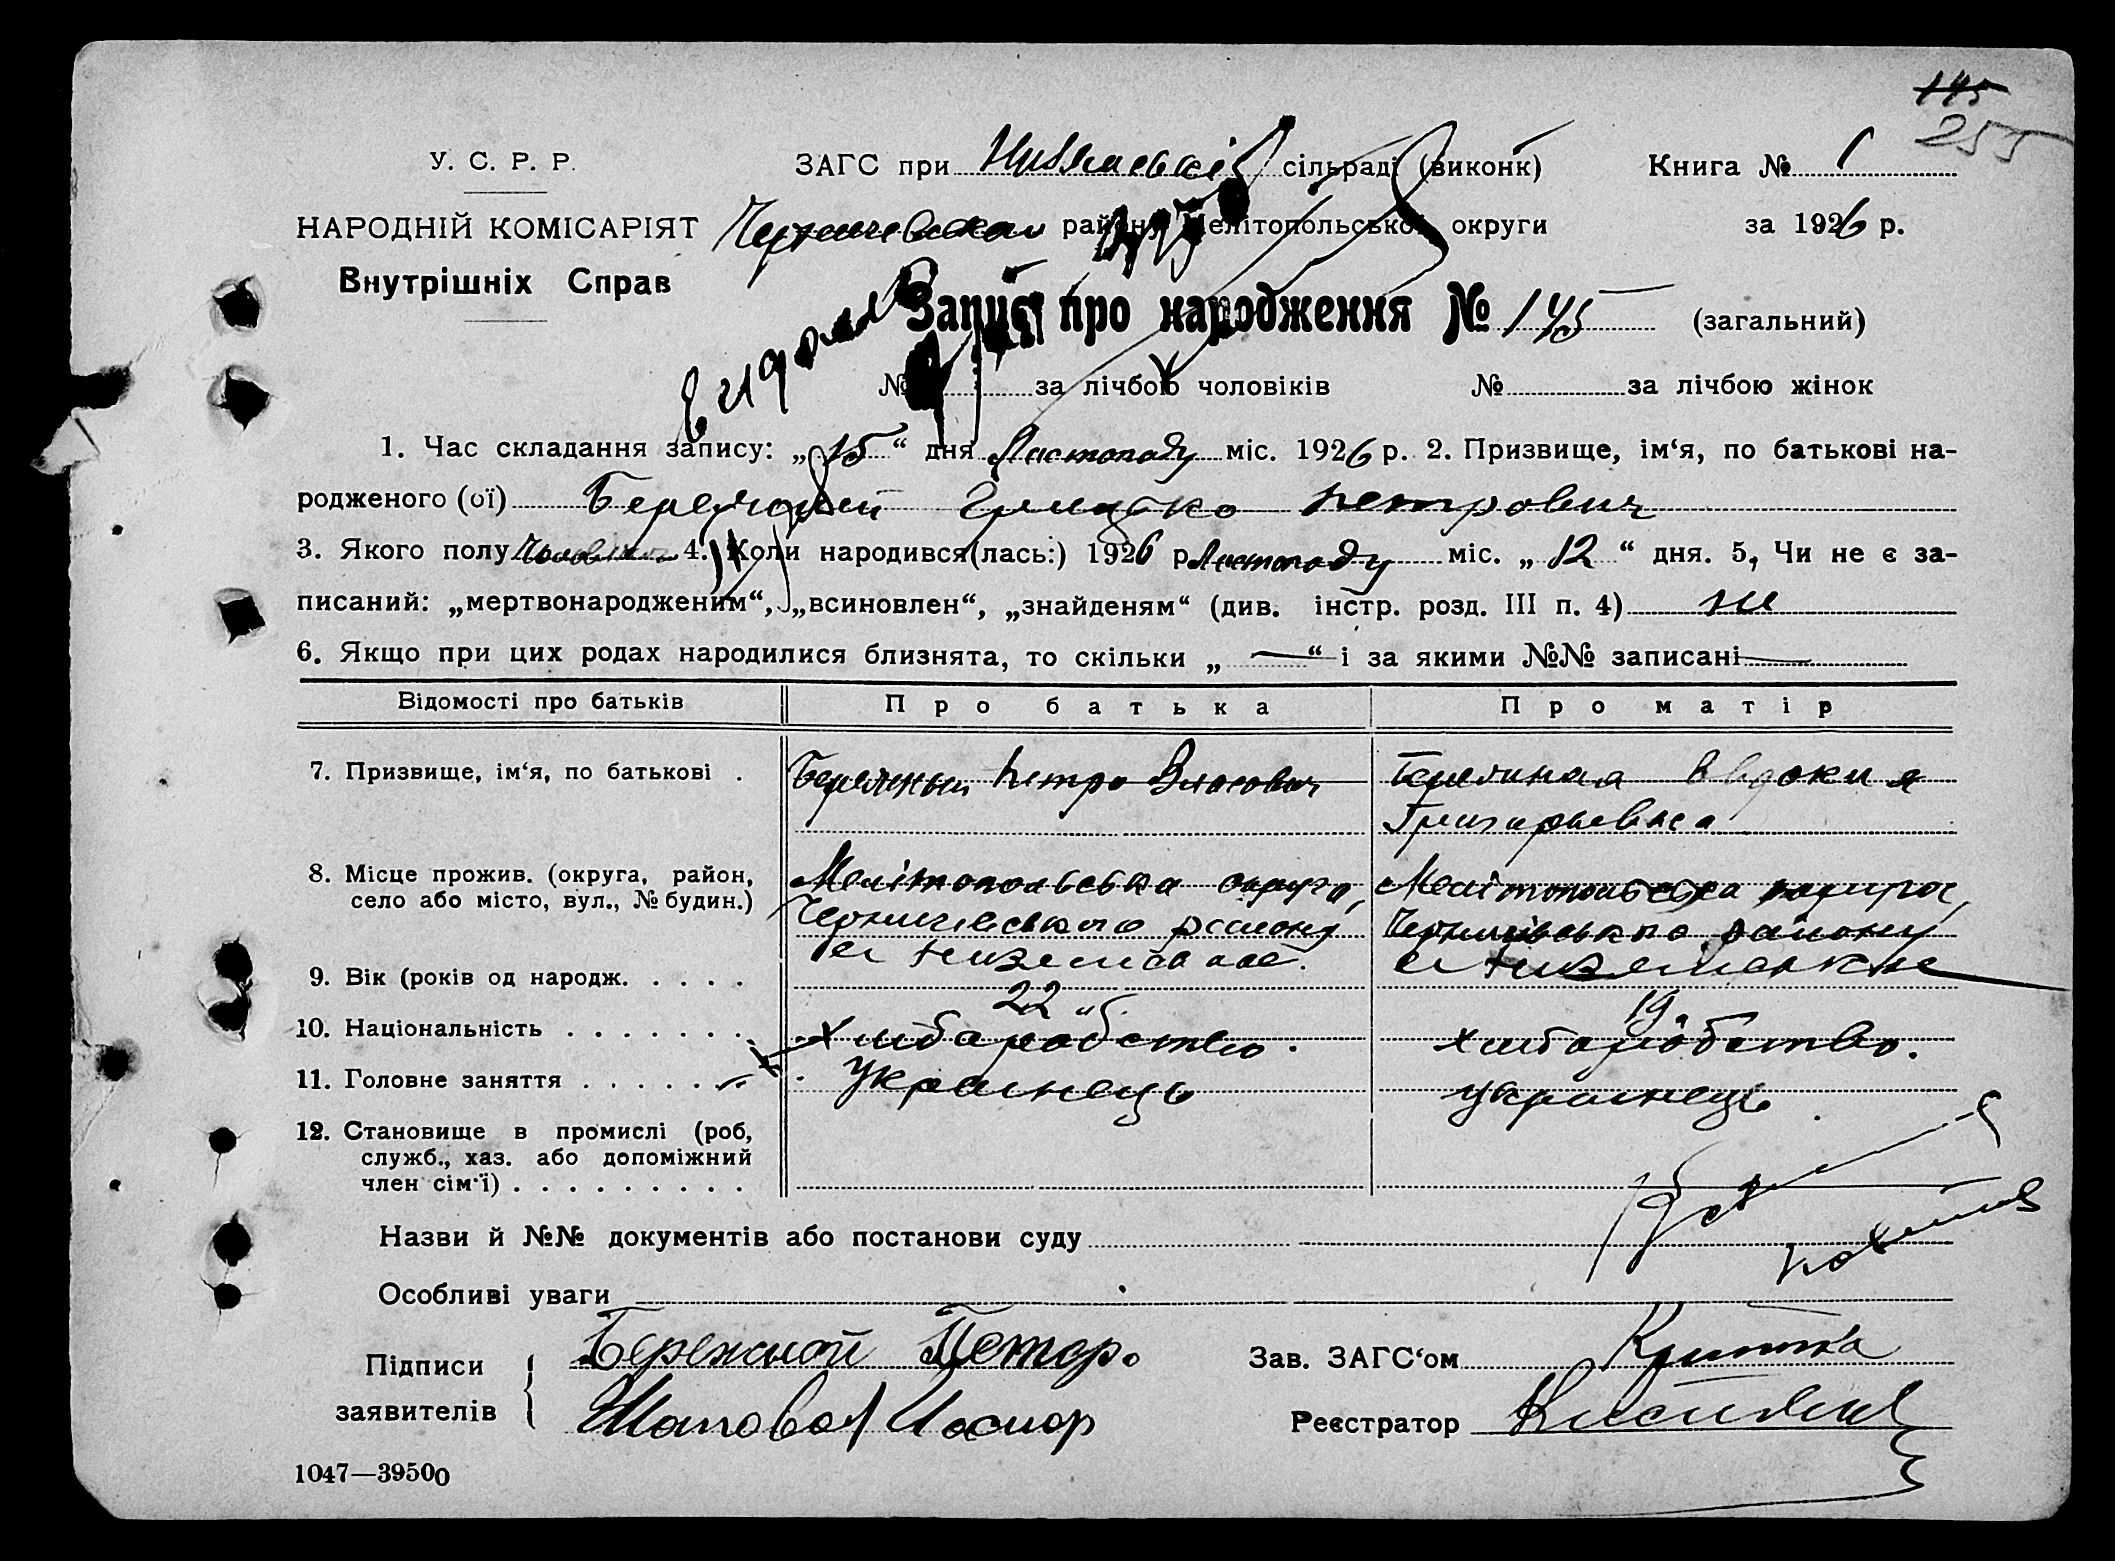 145
255
У. С. Р. Р. ЗАГС при сільраді (виконк) Книга № 1
НАРОДНІЙ КОМІСАРІЯТ району Мелітопольської округи за 1926 р.
Внутрішніх Справ
Запис про народження № 145 (загальний)
№ за лічбою чоловіків № за лічбою жінок
1. Час складання запису: „15“ дня Листопаду міс. 1926 р. 2. Призвище, ім‘я, по батькові на-
родженого (ої) Петрович
3. Якого полу 4. Коли народився(лась:) 1926 р. Листопаду міс. „12“ дня. 5, Чи не є за-
писаний: „мертвонародженим“, „всиновлен“, „знайденям“ (див. інстр. розд. III п. 4) ні
6. Якщо при цих родах народилися близнята, то скільки „—“ і за якими №№ записані —
Відомості про батьків Про батька Про матір
7. Призвище, ім‘я, по батькові . Бережный Петро Власович Бережная Явдокия
Григорьевна
8. Місце прожив. (округа, район, село або місто, вул., № будин.) Мелітопольська округа, Мелітопольська округа,
Чернигівського району Чернигівського району
9. Вік (років од народж. . . . . 22 19.
10. Національність . . . . . . . хліборобство. хліборобство.
11. Головне заняття . . . . . . Украінець украінець
12. Становище в промислі (роб,
служб., хаз. або допоміжний
член сім‘ї) . . . . . . . . .
Назви й №№ документів або постанови суду
Особливі уваги
Підписи заявителів Бережной Петор. Зав. ЗАГС‘ом
Шаповал Реєстратор
1047—39500